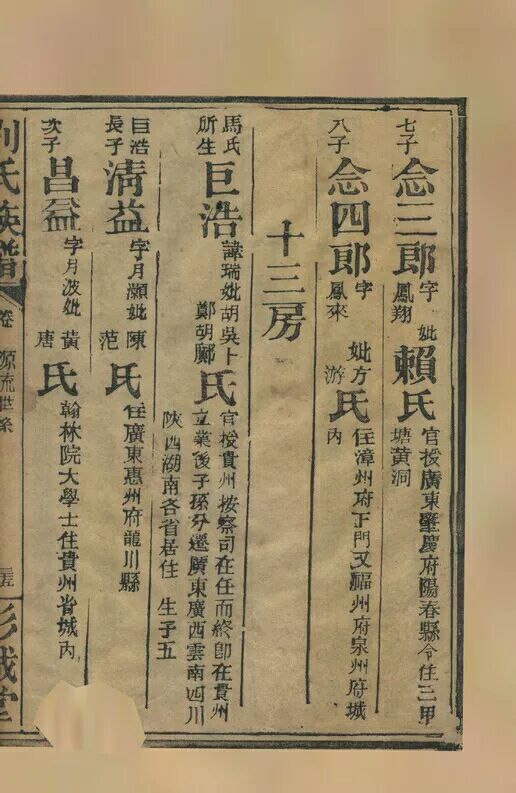 七子 念三郎 字鳳翔 妣 賴氏 官授廣東肇慶府陽春縣令住三甲塘黄洞
八子 念四郎 字鳳來 妣方游氏 住漳州府正門又福州府泉州府城内
十三房
馬氏所生 巨浩 諱瑞妣胡吳卜鄭胡鄺氏 官授貴州按察司在任而終即在貴州立業後子孫分遷廣東廣西雲南四川陝西湖南各省居住 生子五
巨浩長子 清益 字月灝妣陳范氏 住廣東惠州府龍川縣
次子 昌益 字月波妣黄唐氏 翰林院大學士住貴州省城内
劉氏族譜 卷 源流世系 彭城堂